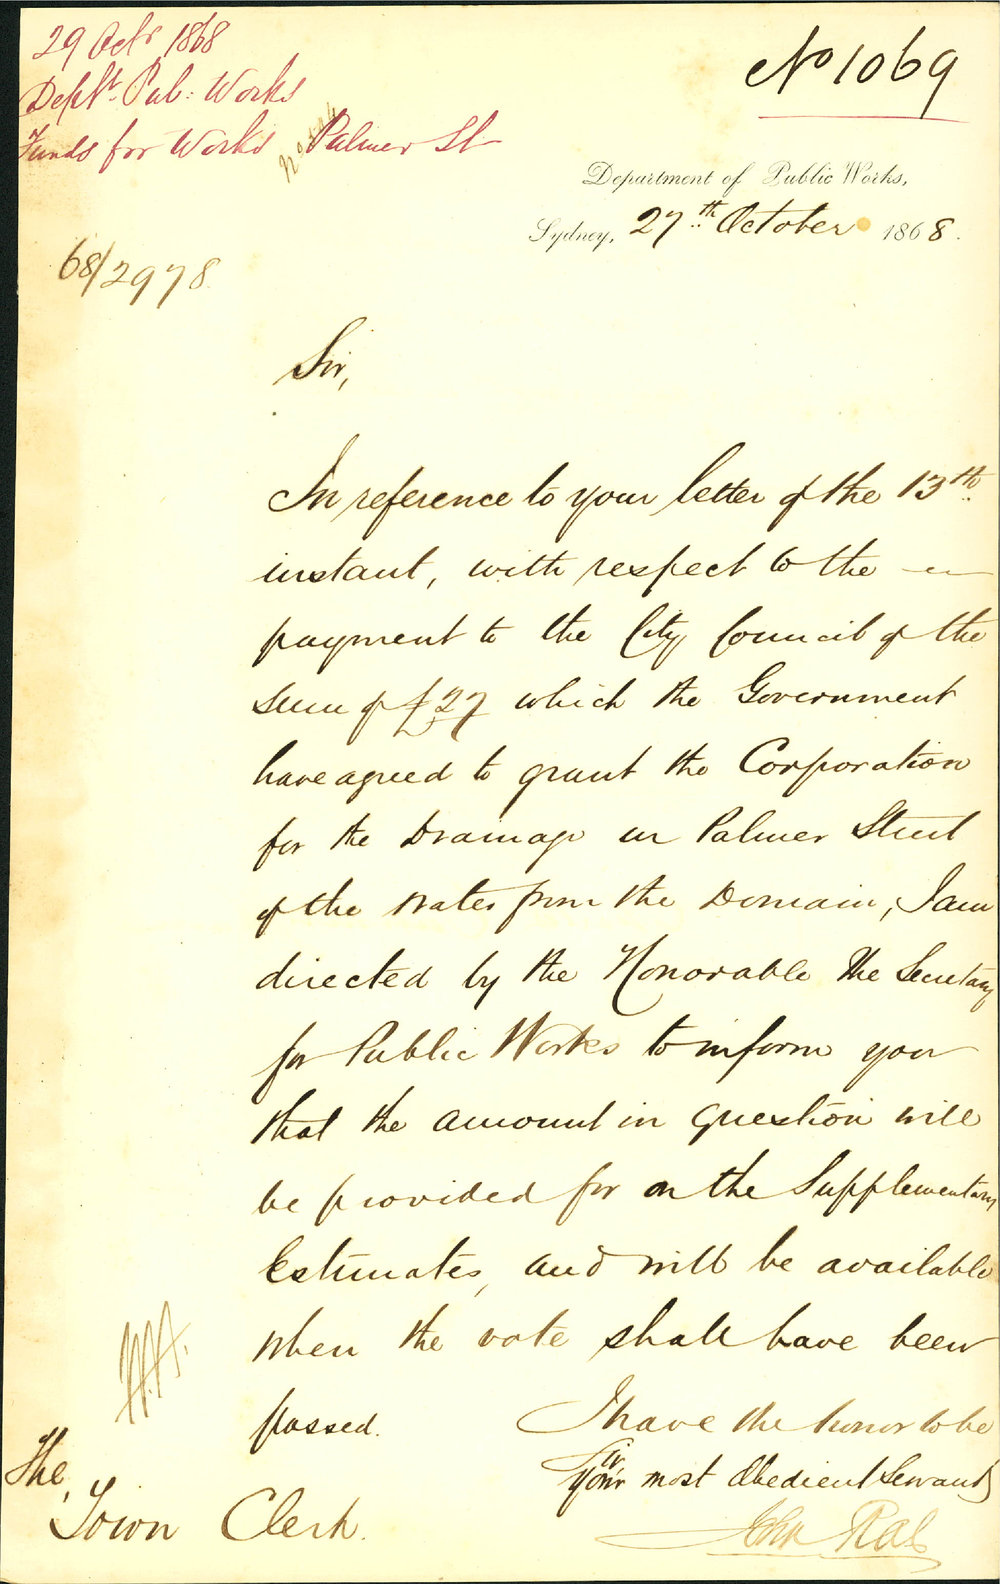 29 Octr 1868
Deptt. Pub: Works
Funds for Works Palmer St
No 1069
Department of Public Works,
Sydney, 27th October 1868.
68/2978
Sir,
In reference to your letter of the 13th
instant, with respect to the
payment to the City Council of the
sum of £27 which the Government
have agreed to grant the Corporation
for the Drainage in Palmer Street
of the Water from the Domain, I am
directed by the Honorable the Secretary
for Public Works to inform you
that the amount in question will
be provided for on the Supplementary
Estimates, and will be available
when the vote shall have been
passed.
I have the honor to be
Sir,
Your most Obedient Servant
John Rae
The
Town Clerk.